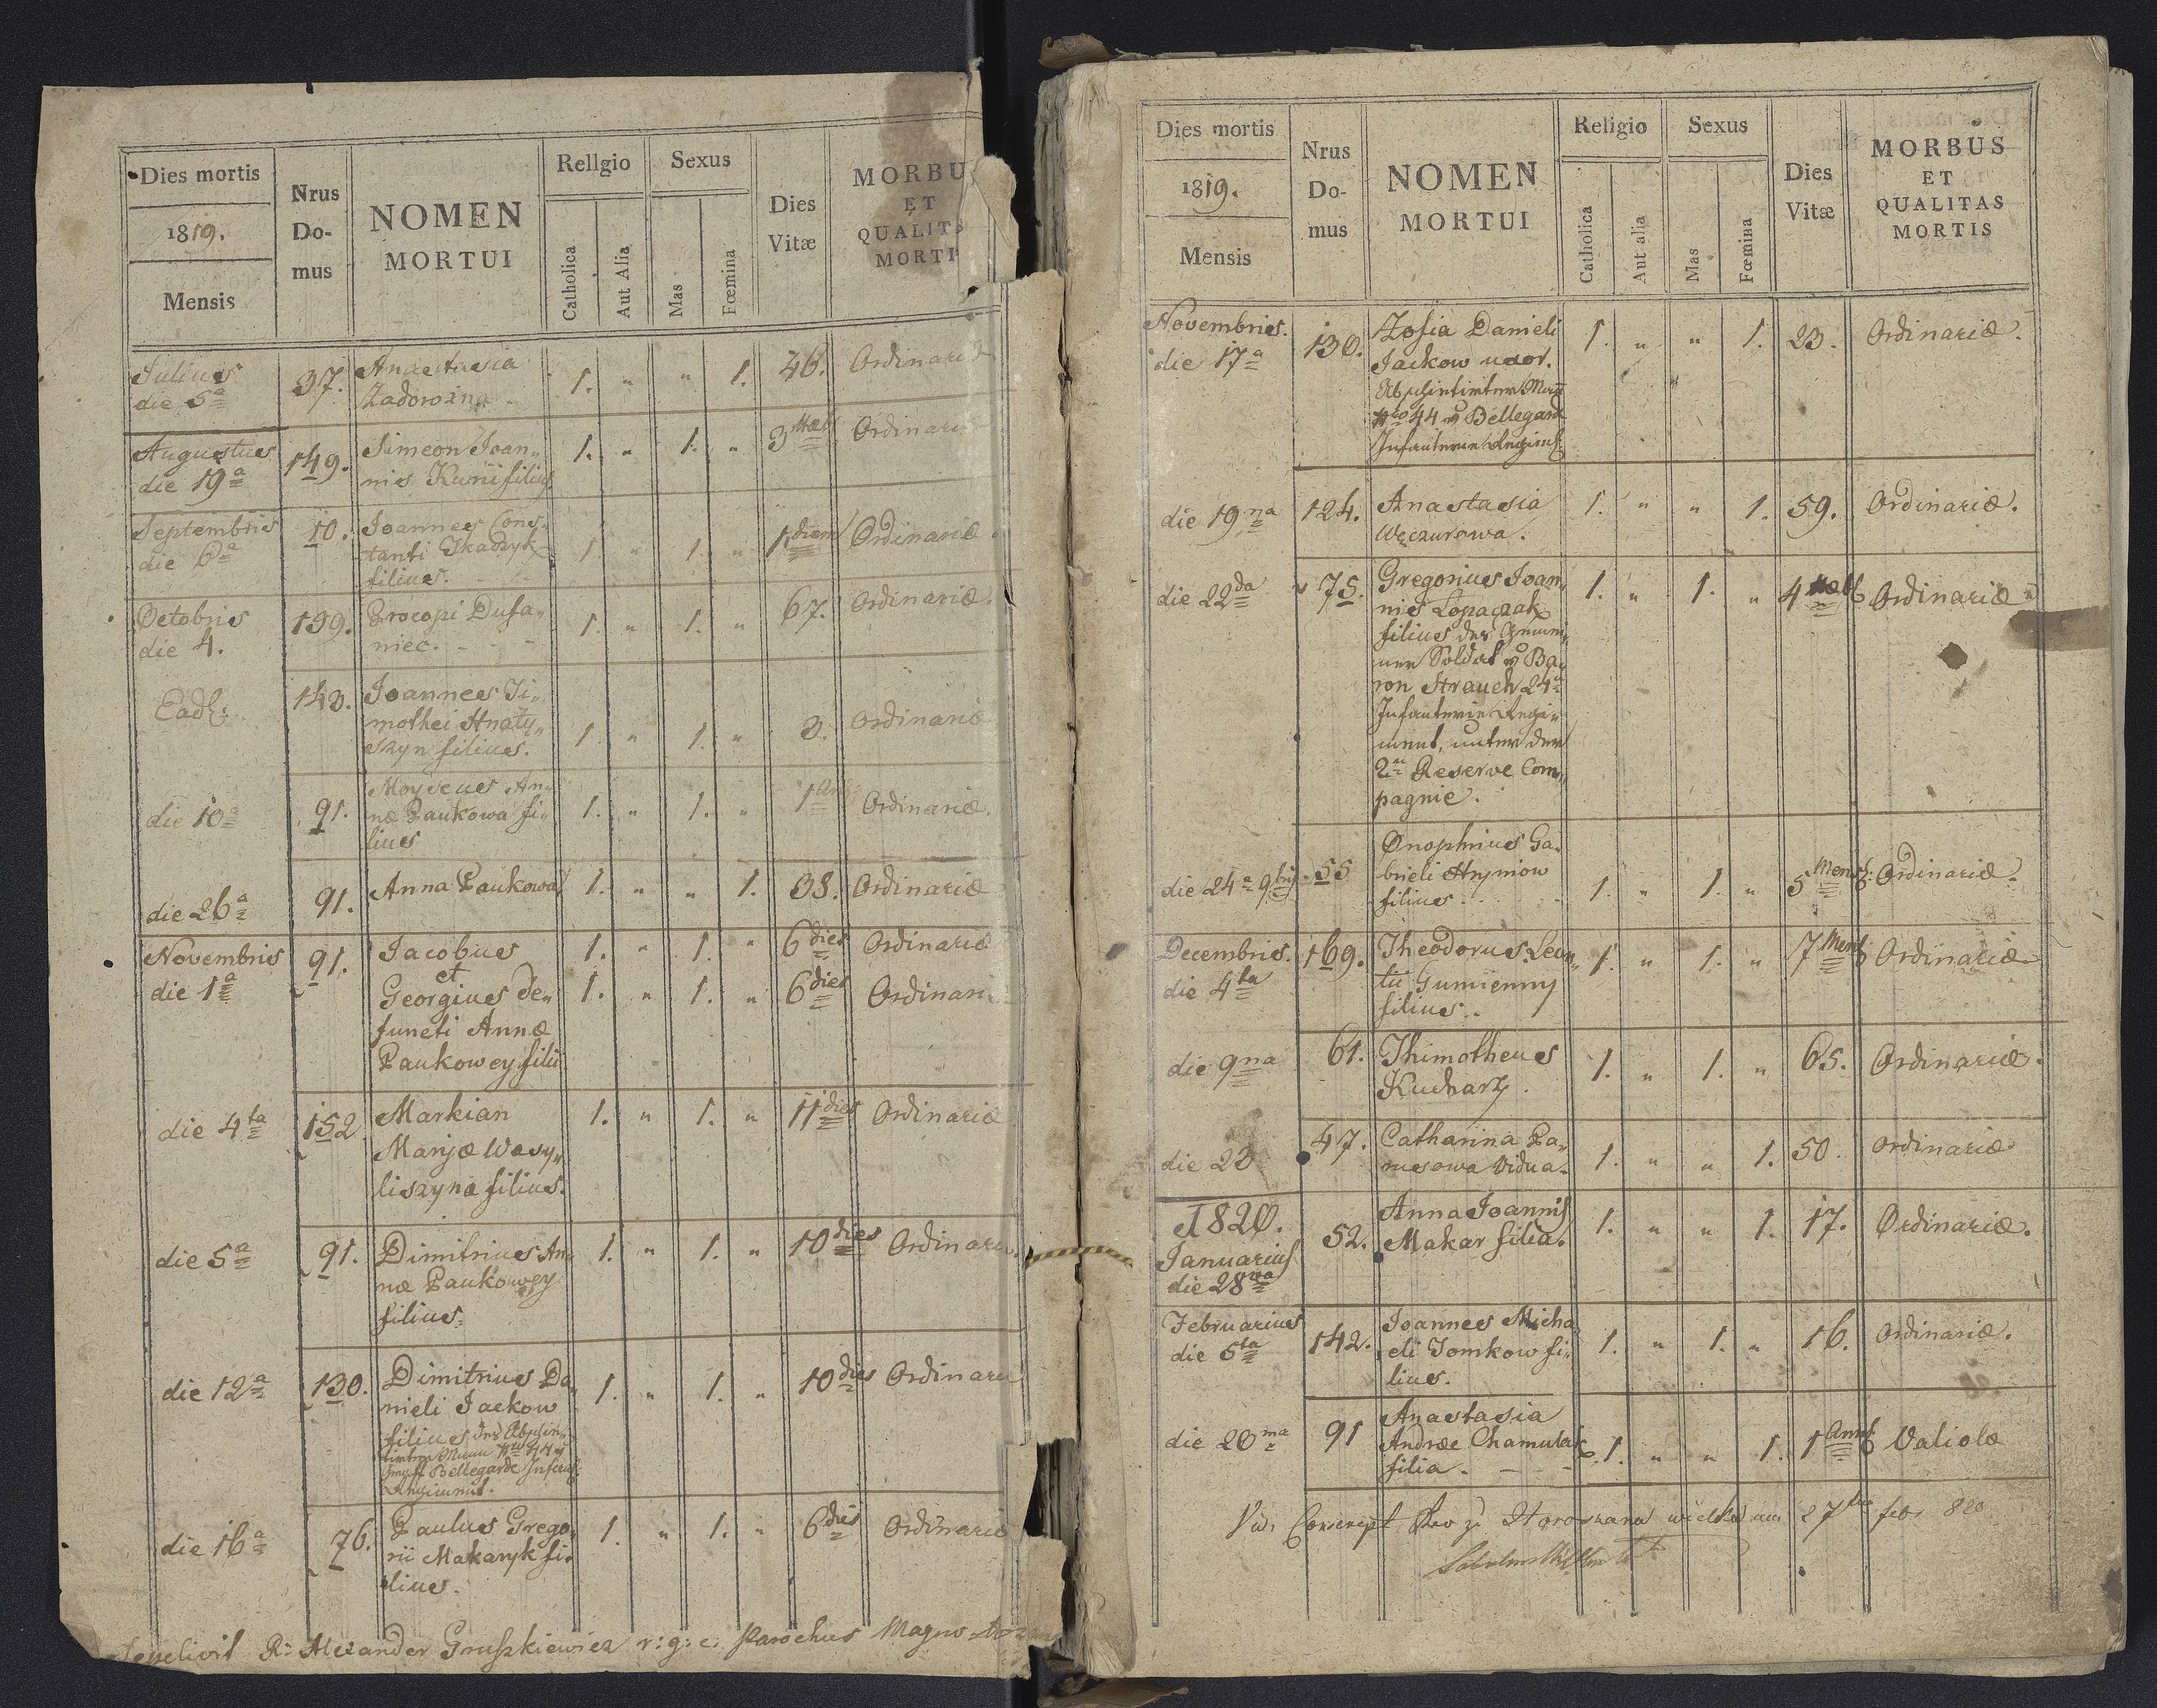 Dies mortis
1819.
Mensis
Nrus
Do-
mus
NOMEN
MORTUI
Rellgio
Catholica
Aut Alia
Sexus
Mas
Fœmina
Dies
Vitæ
MORBU
ET
QUALITS
MORTI
Julius
die 5a
37.
Anastasia
Zadorożna
1. " " 1. 46. Ordinariæ
Augustus
die 19a
149.
Simeon Joan„
nis Kunii filius
1. " 1. " 3 Ordinariæ
Septembris
die 6a
10.
Joannes Cons„
tanti Tkaczyk
filius.
1. " 1. " 1 diem Ordinariæ.
Octobris
die 4.
199.
Procopi Dusa„
niec.
1. " 1. " 67. Ordinariæ.
Ead:
143.
Joannes Ti„
mothei Hnaty„
szyn filius.
1. " 1. " 3. Ordinariæ
die 10a
91.
Moyseus An„
næ Paukowa fi„
lius
1. " 1. " 1 Ordinariæ.
die 26a
91.
Anna Paukowa
1. " " 1. 38. Ordinariæ
Novembris
die 1a
91.
Jacobus
et
Georgius de„
functi Annæ
Paukowey filii
1. " 1. " 6 dies Ordinariæ
1. " 1. " 6 dies Ordinari
die 4ta
152
Markian
Maryæ Wasy„
liszyna filius.
1. " 1. " 11 dies Ordinariæ
die 5a
91.
Dimitrius An„
næ Paukowey
filius.
1. " 1. " 10 dies Ordinari
die 12a
130.
Dimitrius Da„
nieli Jackow
filius des
Bellegarde
Regiment.
1. " 1. " 10 dies Ordinari
die 16a
76.
Paulus Grego„
rii Makaryk fi„
lius.
1. " 1. " 6 dies Ordinariæ
Sepelivit R: Alexander Gruszkiewicz r: g: c: Parochus Magno
Dies mortis
1819.
Mensis
Nrus
Do-
mus
NOMEN
MORTUI
Religio
Catholica
Aut alia
Sexus
Mas
Fœmina
Dies
Vitæ
MORBUS
ET
QUALITAS
MORTIS
Novembris.
die 17a
130.
Zofia Danieli
Jackow uxor.
44 v Bellegard
Infanterie Regiment
1. " " 1. 23. Ordinariæ.
die 19na
124.
Anastasia
Węczurowa.
1. " " 1. 59. Ordinariæ.
die 22da
75.
Gregorius Joan„
nis Łopaczak
filius des Gemei„
nen Soldat v Ba„
ron Strauch 24
Infanterie Regi„
ment, unter der
2te Reserve Com„
pagnie.
1. " 1. " 4 Ordinariæ
die 24a 9bris
55
Onophrius Ga„
brieli Hryniow
filius.
1. " 1. " 5 Mens: Ordinariæ.
Decembris.
die 4ta
169.
Theodorus Leon„
tii Gumienny
filius.
1. " 1. " 7 Mens Ordinariæ
die 9na
61.
Thimotheus
Kucharz.
1. " 1. " 65. Ordinariæ.
die 23
47.
Catharina Pa„
rusowa Vidua.
1. " " 1. 50. Ordinariæ
1820.
Januarius
die 28va
52.
Anna Joannis
Makar filia.
1. " " 1. 17. Ordinariæ.
Februarius
die 5ta
142.
Joannes Micha„
eli Tomkow fi„
lius.
1. " 1. " 16. Ordinariæ.
die 20ma
91
Anastasia
Andræ Chamulak
filia.
1. " " 1. 1 Anni Variola
27 feb 820